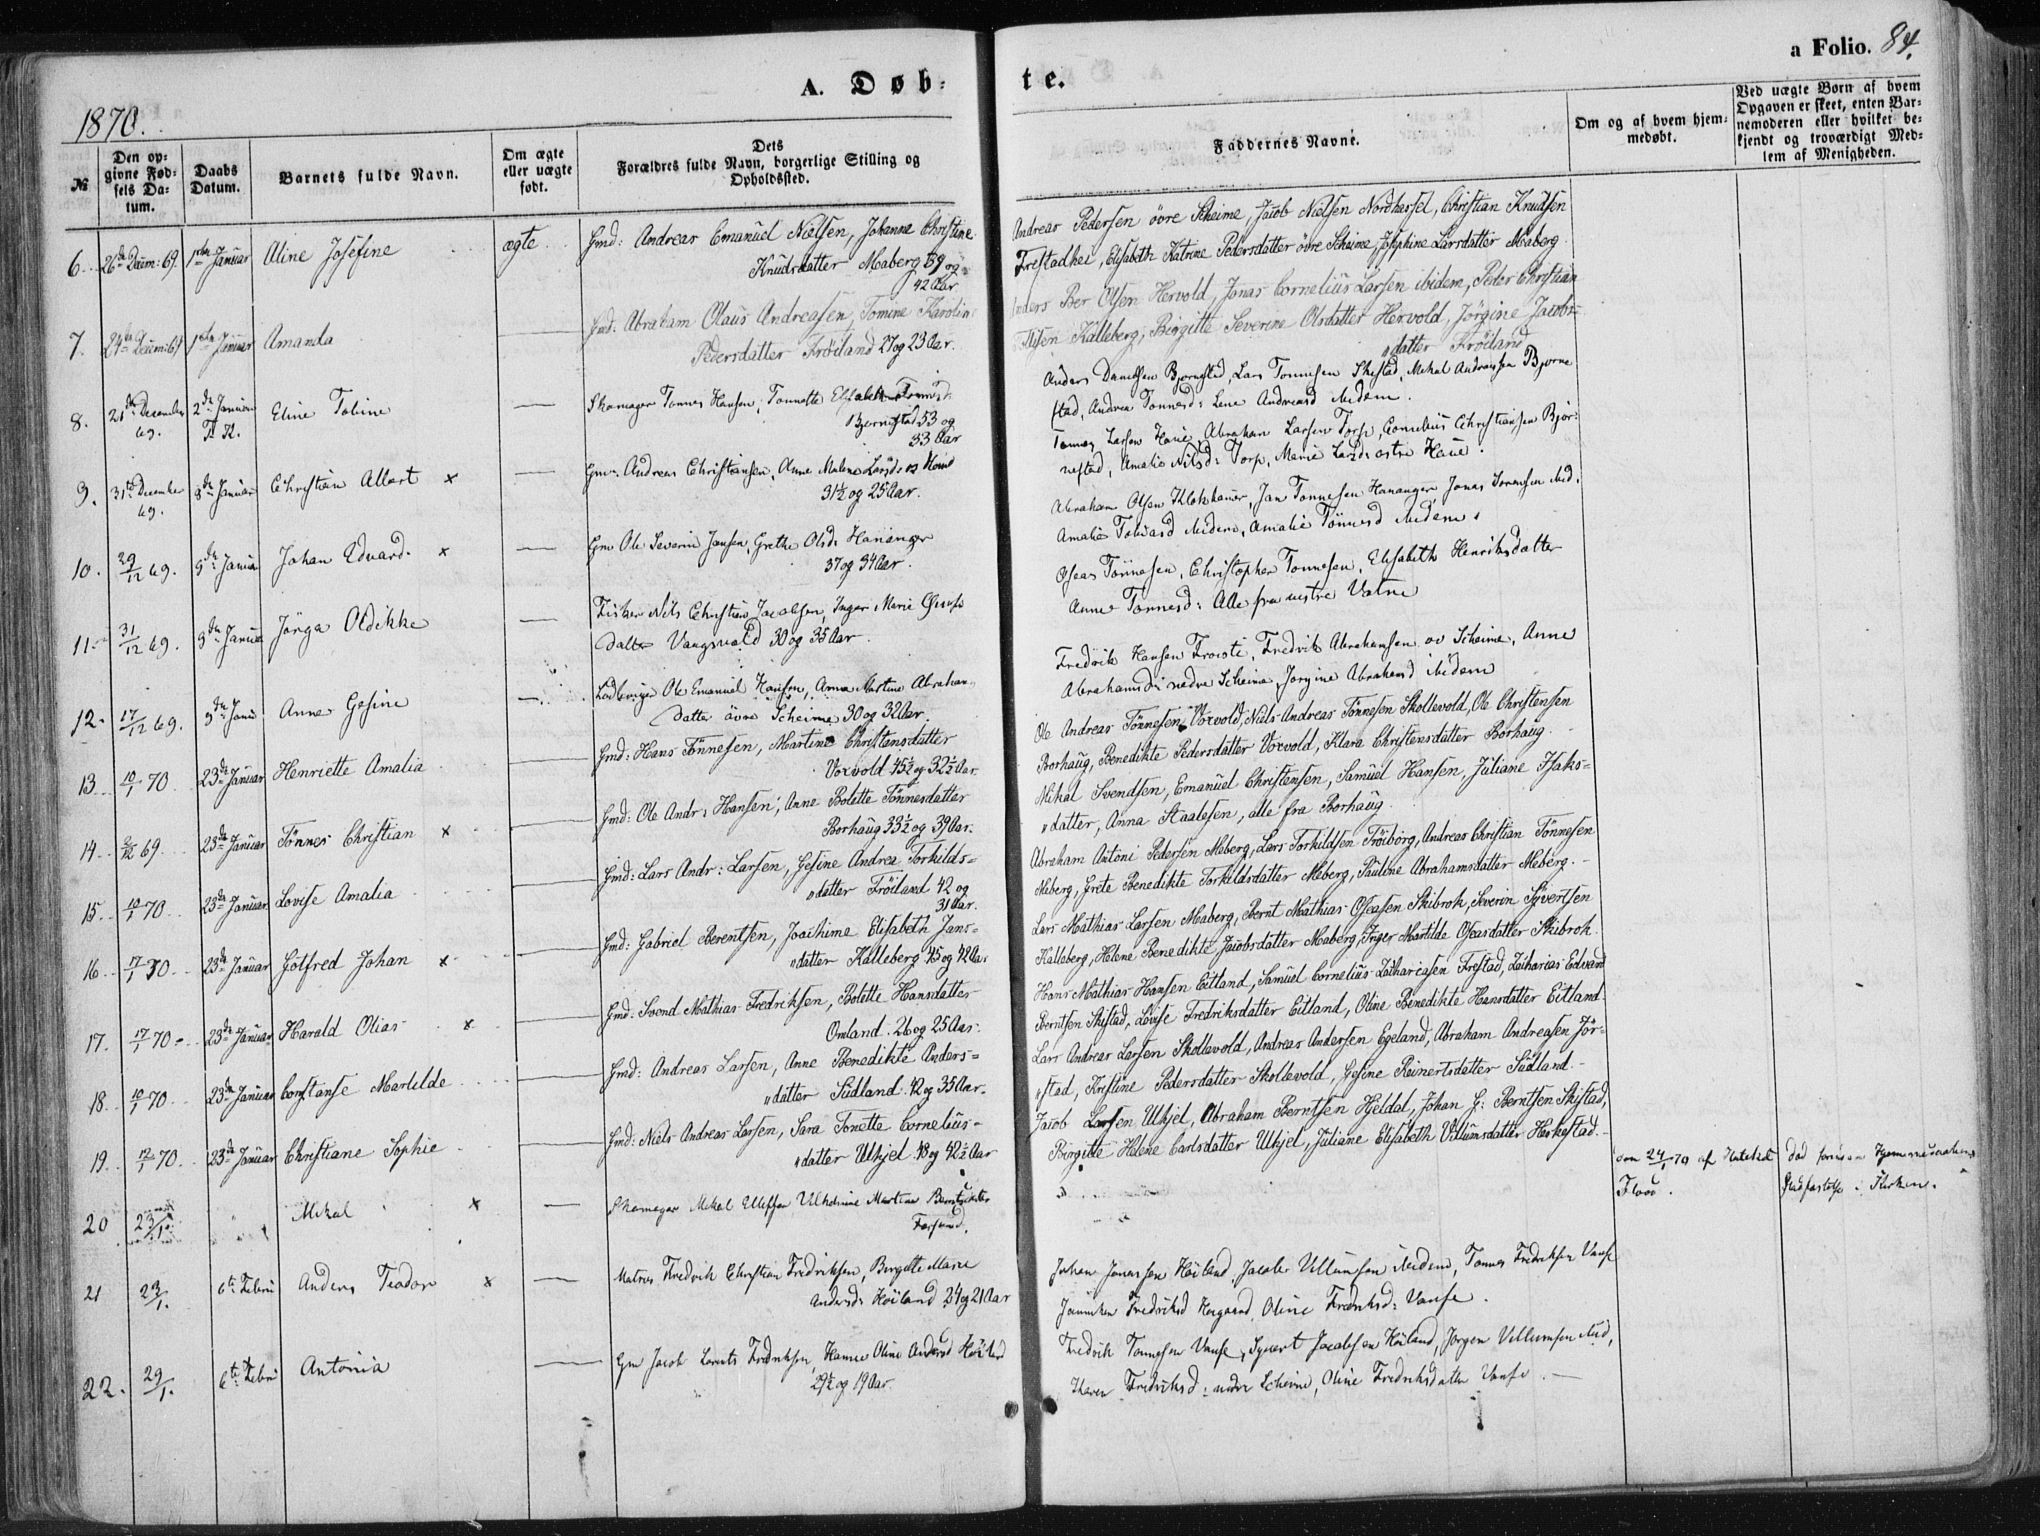 a Folio. 84.
A. Døb-
te.
1870.
№
Den op-
givne Fød-
sels Da-
tum.
Daabs
Datum.
Barnets fulde Navn.
Om ægte
eller uægte
født.
Dets
Forældres fulde Navn, borgerlige Stilling og
Opholdssted.
Faddernes Navne.
Om og af hvem hjem-
medøbt.
Ved uægte Børn af hvem
Opgaven er skeet, enten Bar-
nemoderen eller hvilket be-
kjendt og troværdigt Med-
lem af Menigheden.
6. 26de Decem: 69. 1ste Januar Aline Josefine ægte Gmd: Andreas Emanuel Nielsen, Johanne Christine
Knudsdatter Maberg 39 og
42 Aar
Andreas Pedersen övre Scheime, Jacob Nielsen Nordhassel, Christian Knudsen
Frestadhei, Elisabeth Katrine Pedersdatter övre Scheime, Josephine Larsdatter Maberg.
7. 24de Decem: 69 1ste Januar Amanda Gmd: Abraham Olaus Andreasen, Tomine Karoline
Pedersdatter Fröiland 27 og 23 Aar.
Anders Ber Olsen Hervold, Jonas Cornelius Larsen ibidem, Peder Christian
Kalleberg, Birgitte Severine Olsdatter Hervold, Jörgine Jacobs-
datter Fröiland
8. 21de December 69. 2de Januar F. K. Eline Toline Skomager Tönnes Hansen, Tonnette Elisabeth
Bjørnestad 53 og
33 Aar
Anders Danielsen Bjørnestad, Lars Tonnesen Skistad, Mikal Andreasen Bjorne
stad, Andrea Tonnesd: Lene Andreasd ibidem.
9. 31te December 69. 9de Januar Christian Albert x Gmd. Andreas Christiansen, Anne Malene Larsd:
31½ og 25 Aar.
Tönnes Larsen Haue, Abraham Larsen Torp, Cornelius Christiansen Björ-
nestad, Amalie Nilsd: Torp, Marie Larsd: östre Haue.
10. 29/12 69. 9de Januar Johan Edvard. x Gm Ole Severin Jansen, Grethe Olsd: Hananger
37 og 34 Aar.
Abraham Olsen Klokhauer, Jan Tonnesen Hananger, Jonas Sörensen ibid,
Amalie Tobiasd ibidem, Amalie Tönnesd ibidem.
11. 31/12 69. 9de Januar Jörga Oldikke Fisker Nils Christian Jacobsen, Inger Marie
datter Vangsvald 30 og 35 Aar.
Oseas Tönnesen, Christopher Tonnesen, Elisabeth Henriksdatter
Anne Tonnesd: Alle fra vestre Vatne
12. 17/12 69. 9de Janu Anne Gesine Ole Emanuel Hansen, Anne Martine Abraham
datter övre Scheime 30 og 32 Aar.
Fredrik Hansen Froiste, Fredrik Abrahamsen ov Scheime, Anne
Abrahamsd: nedre Scheime, Jorgine Abrahamsd ibidem
13. 10/1 70 23de Januar Henriette Amalia Gmd: Hans Tönnesen, Martine Christiansdatter
Vorvold 45½ og 32½ Aar.
Ole Andreas Tönnesen Vorvold, Niels Andreas Tönnesen Skollevold, Ole Christensen
Borhaug, Benedikte Pedersdatter Vorvold, Klara Christensdatter Borhaug.
14. 2/12 69. 23de Januar Tönnes Christian x Gmd: Ole Andr: Hansen, Anne Bolette Tönnesdatter
Borhaug 33½ og 39 Aar.
Mikal Svendsen, Emanuel Christensen, Samuel Hansen, Juliane Isaks-
datter, Anna Staalesen, alle fra Borhaug.
15. 10/1 70 23de Januar Lovise Amalia Gmd: Lars Andr: Larsen, Gesine Andrea Torkilds-
datter Fröiland 42 og
31 Aar.
Abraham Antoni Pedersen Meberg, Lars Torkildsen Fröiborg, Andreas Christian Tönnesen
Meberg, Grete Benedikte Torkildsdatter Meberg, Pauline Abrahamsdatter Meberg.
16 17/1 70 23de Januar Gotfred Johan x Gmd: Gabriel Berentsen, Joachime Elisabeth Jans-
datter Kalleberg 45 og 42 Aar
Lars Mathias Larsen Maberg, Bernt Mathias Oseasen Skibrok, Severin Syvertsen
Kalleberg, Helene Benedikte Jacobsdatter Maberg, Inger Martilde Oseasdatter Skibrok.
17. 17/1 70 23de Januar Harald Olias x Gmd: Svend Mathias Fredriksen, Bolette Hansdatter
Omland. 26 og 25 Aar.
Hans Mathias Hansen Eitland, Samuel Cornelius Zachariasen Frestad, Zacharias Edvard
Berntsen Skistad, Lovise Fredriksdatter Eitland, Oline Benedikte Hansdatter Eitland.
18. 10/1 70 23de Januar Constanse Martilde Gmd: Andreas Larsen, Anne Benedikte Anders-
datter Sudland. 42 og 35 Aar.
Lars Andreas Larsen Skollevold, Andreas Andersen Egeland, Abraham Andreasen Jör-
stad, Kristine Pedersdatter Skollevold, Gesine Reinertsdatter Sudland.
19. 12/1 70. 23de Januar Christiane Sophie Gmd: Niels Andreas Larsen, Sara Tonette Cornelius-
datter Ulhjel. 48 og 42½ Aar
Jacob Larsen Ulhjel, Abraham Berntsen Hjeldal, Johan G: Berntsen Skistad,
Birgitte Helene Carlsdatter Ulhjel, Juliane Elisabeth Villumsdatter Herkestad.
20 23/1 Mikal x Skomager Mikal Ellefsen Vilhelmine Martine Berntsdatter
Farsund.
24/1 70 af
død
21 23/1. 6te Febru Anders Teodor x Matros Fredrik Christian Fredriksen, Birgitte Marie
Andersd: Höiland 24 og 21 Aar
Johan Jonassen Höiland, Jacob Villumsen ibidem, Tönnes Fredriksen Vanse
Fredriksd Oline Fredriksd: Vanse.
22. 29/1. 6te Febru Antonia Gm Jacob Lorents Fredriksen, Hanne Oline Andersd Höiland
29½ og 19 Aar.
Fredrik Tonnesen Vanse, Syvert Jacobsen Höiland, Jorgen Villumsen ibid,
Karen Fredriksd: nedre Scheime, Oline Fredriksdatter Vanse.